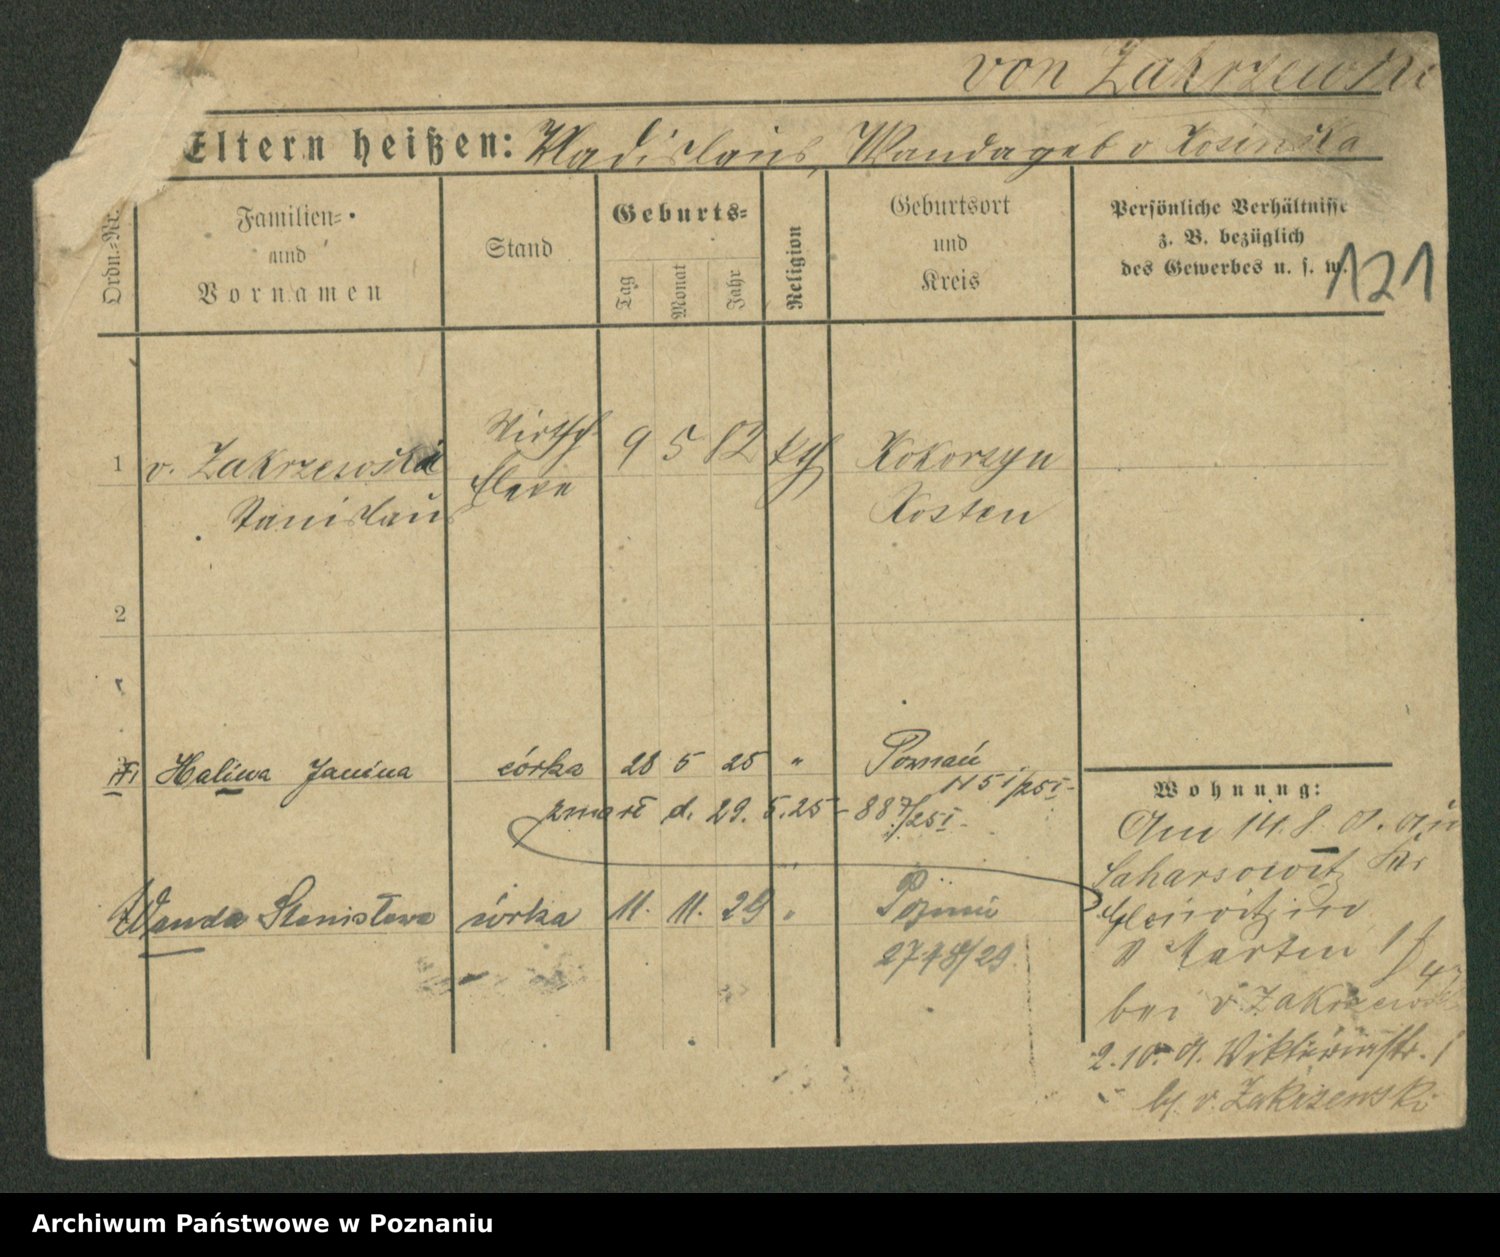 von Zakrzewski
Eltern heißen: Wladislaus, Wanda geb v Kosinska
Ordn.-Nr.
Familien=
und
Vornamen
Stand
Geburts=
Tag
Monat
Jahr
Religion
Geburtsort
und
Kreis
Persönliche Verhältnisse
z. B. bezüglich
des Gewerbes u. s. w.
121
1 v. Zakrzewski Wirtsch 9 5 82 kth Kokorzyn
Stanislaus Eleve Kosten
2
Halina Janina córka 28 5 25 " Poznań
zmarł d. 29. 5. 25 - 887/25 I
Wanda Stanisława córka 11. 11. 29 " Poznań
2748/29
Wohnung:
Am 14. 8. 01. aus
Martin
bei v Zakrzewski
2. 10. 01. Viktoriastr.
b/. v. Zakrzewski
Archiwum Państwowe w Poznaniu